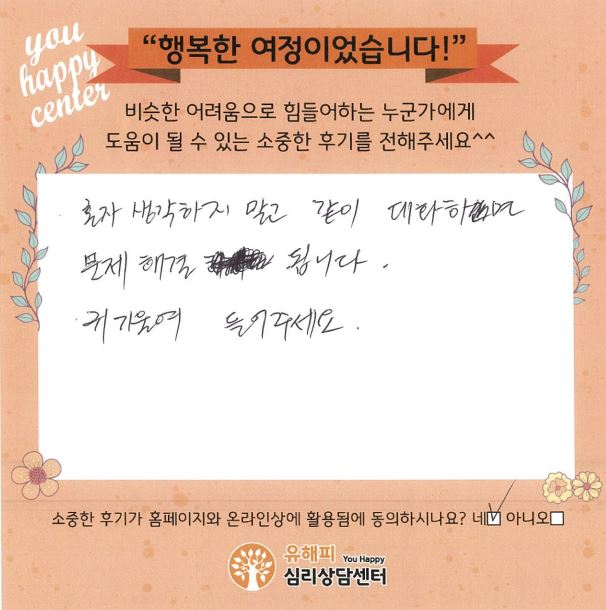 you
happy
center
“행복한 여정이었습니다!”
비슷한 어려움으로 힘들어하는 누군가에게
도움이 될 수 있는 소중한 후기를 전해주세요^^
혼자 생각하지 말고 같이 대화하면
문제 해결 됩니다.
귀 기울여 들어주세요.
소중한 후기가 홈페이지와 온라인상에 활용됨에 동의하시나요? 네☑ 아니오☐
유해피 You Happy
심리상담센터